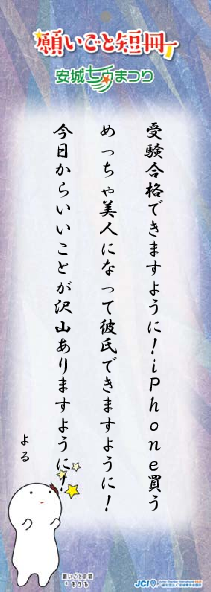 願いごと短冊
安城七夕まつり
受験合格できますように!iPhone買う
めっちゃ美人になって彼氏できますように!
今日からいいことが沢山ありますように!
よる
JCI